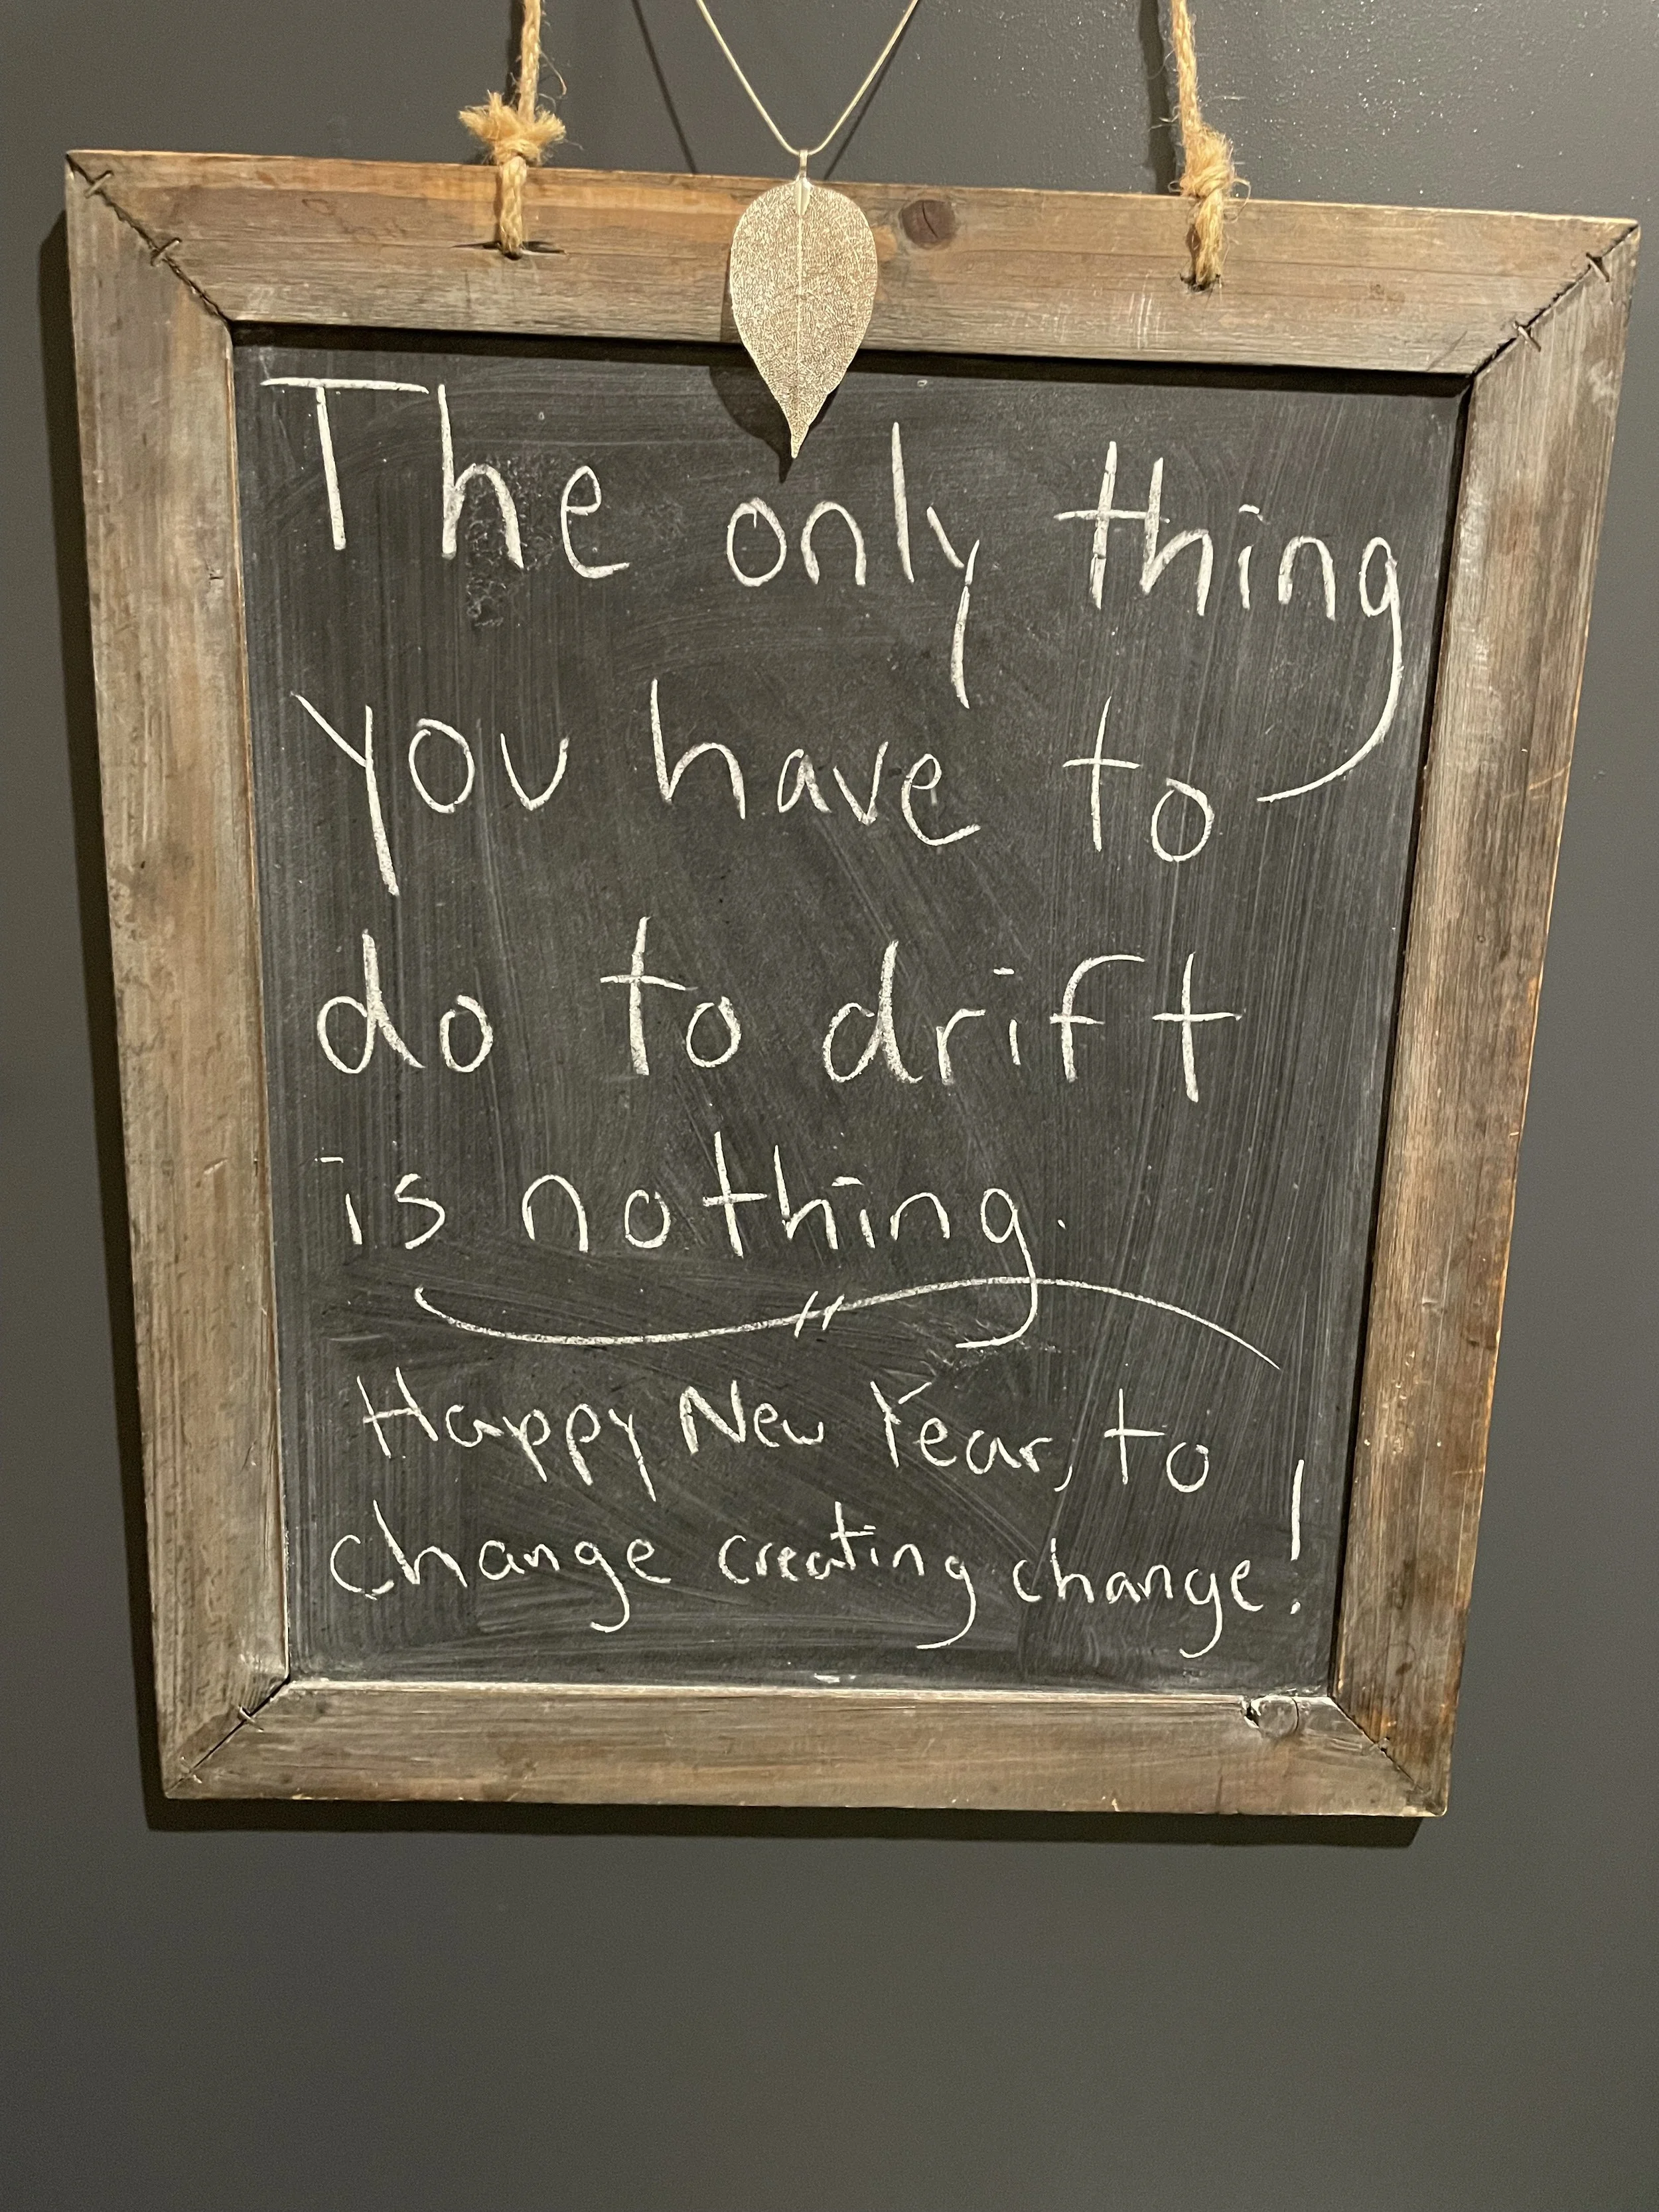 The only thing
you have to
do to drift
is nothing.
Happy New Year, to
change creating change!